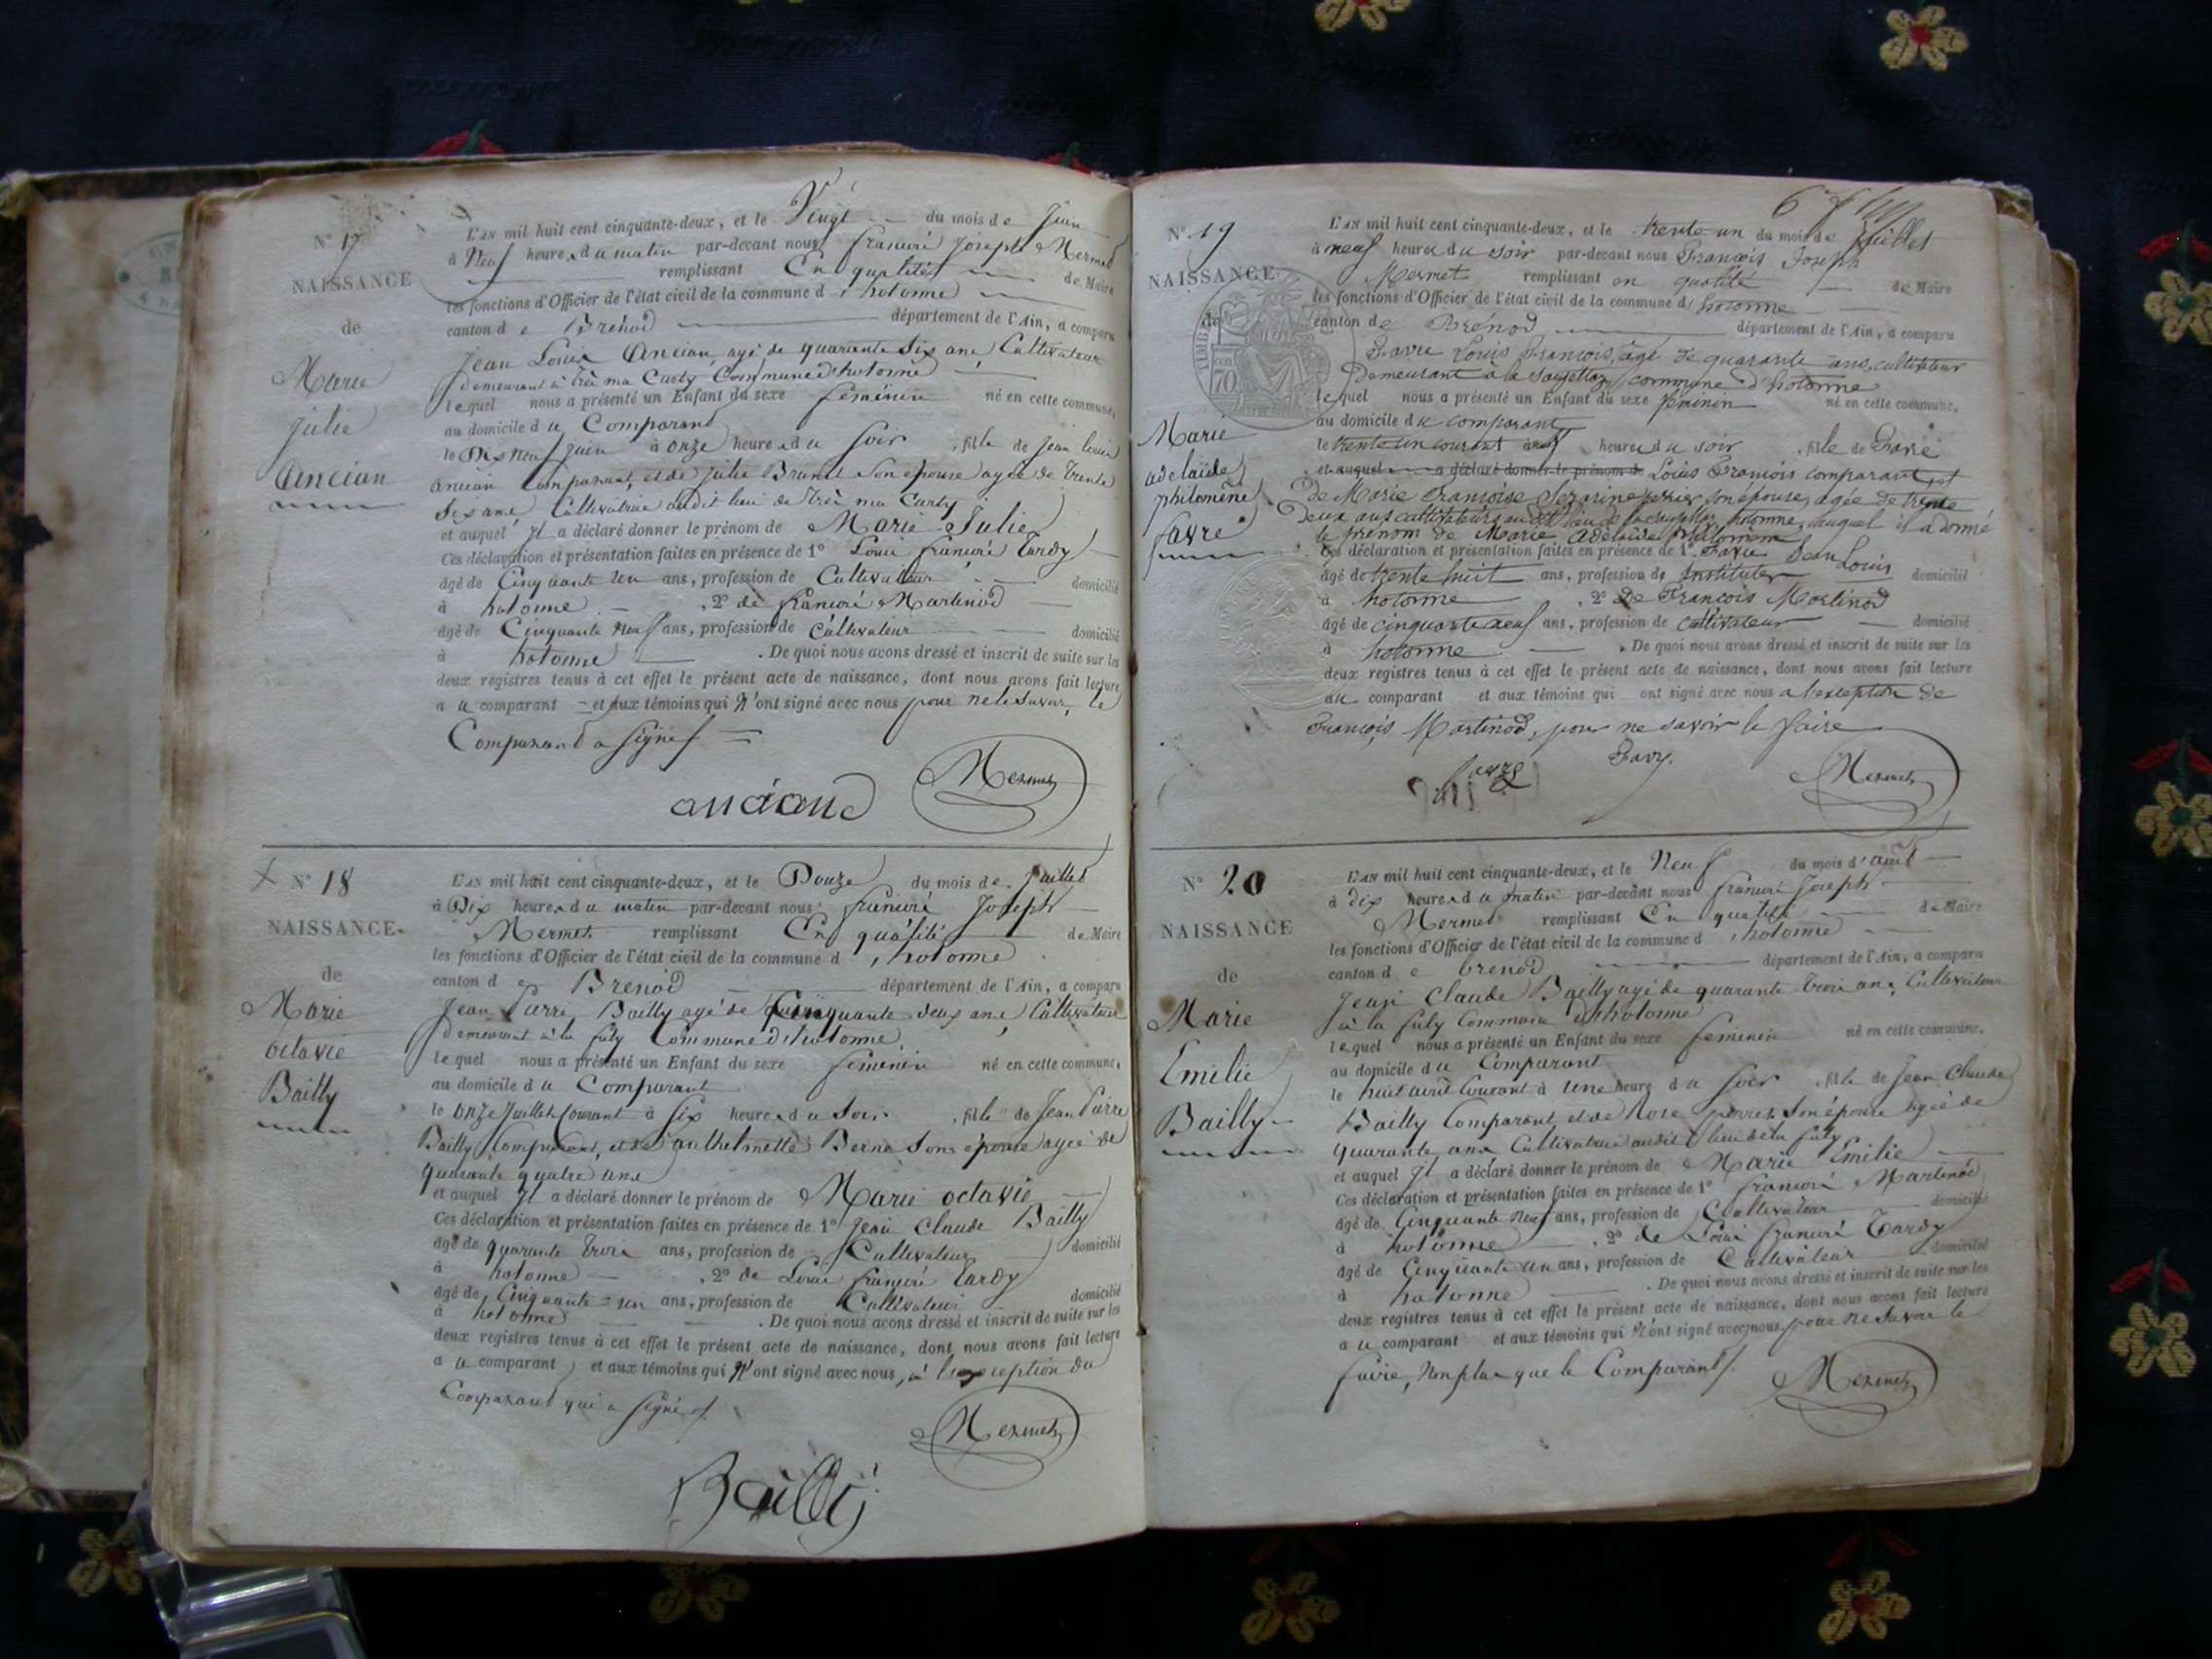 N° 17
NAISSANCE
de
Marie
julie
Ancian
L'AN mil huit cent cinquante-deux, et le Vingt du mois de Juin
à Neuf heures du matin par-devant nous françois joseph Mermet
remplissant En qualité de Maire
les fonctions d'Officier de l'état civil de la commune d'hotonne
canton de Brénod département de l'Ain, a comparu
Jean Louis Ancian, agé de quarante six ans Cultivateur
demeurant à très ma Curty Commune d'hotonne
lequel nous a présenté un Enfant du sexe féminin né en cette commune,
au domicile du Comparant
le Dix neuf juin à onze heures du soir, fille de jean louis
ancian Comparant, et de julie Brunet son épouse agée de trente
six ans Cultivatrice audit lieu de très ma Curty
et auquel Il a déclaré donner le prénom de Marie Julie
Ces déclaration et présentation faites en présence de 1° Louis françois Tardy
âgé de Cinquante un ans, profession de Cultivateur domicilié
à hotonne, 2° de françois Martinod
âgé de Cinquante Neuf ans, profession de Cultivateur domicilié
à hotonne. De quoi nous avons dressé et inscrit de suite sur les
deux registres tenus à cet effet le présent acte de naissance, dont nous avons fait lecture
au comparant et aux témoins qui N'ont signé avec nous pour ne le savoir, le
Comparand a signé
Mermet
anciand
N° 18
NAISSANCE
de
Marie
octavie
Bailly
L'AN mil huit cent cinquante-deux, et le Douze du mois de juillet
à Dix heures du matin par-devant nous françois Joseph
Mermet remplissant En qualité de Maire
les fonctions d'Officier de l'état civil de la commune d'hotonne
canton de Brenod département de l'Ain, a comparu
Jean Pierre Bailly agé de Cinquante deux ans Cultivateur
demeurant à la fuly Commune d'hotonne
lequel nous a présenté un Enfant du sexe féminin né en cette commune,
au domicile du Comparant
le onze juillet Courant à six heures du soir, fille de Jean Pierre
Bailly Comparant, et de anthelmette Berne son épouse agée de
quarante quatre ans
et auquel Il a déclaré donner le prénom de Marie octavie
Ces déclaration et présentation faites en présence de 1° Jean Claude Bailly
âgé de quarante trois ans, profession de Cultivateur domicilié
à hotonne, 2° de Louis françois Tardy
âgé de Cinquante un ans, profession de Cultivateur domicilié
à hotonne. De quoi nous avons dressé et inscrit de suite sur les
deux registres tenus à cet effet le présent acte de naissance, dont nous avons fait lecture
au comparant et aux témoins qui N'ont signé avec nous, à l'exception du
Comparant qui a signé
Mermet
Bailly
N° 19
NAISSANCE
de
Marie
adelaïde
philomène
favre
L'AN mil huit cent cinquante-deux, et le trente-un du mois de Juillet
à neuf heures du soir par-devant nous François Joseph
Mermet remplissant en qualité de Maire
les fonctions d'Officier de l'état civil de la commune d'hotonne
canton de Brénod département de l'Ain, a comparu
Favre Louis François, âgé de quarante ans, cultivateur
Demeurant à la commune d'hotonne
lequel nous a présenté un Enfant du sexe féminin né en cette commune,
au domicile du comparant
le trente un courant à heures du soir, fille de Favre
et auquel a déclaré donner le prénom de Louis François comparant et
de Marie Françoise son épouse, agée de trente
Deux ans cultivateurs au dit lieu de hotonne, auquel il a donné
le prénom de Marie Adelaïde Philomène
Ces déclaration et présentation faites en présence de 1° Favre Jean Louis
âgé de trente huit ans, profession de Instituteur domicilié
à hotonne, 2° De François Martinod
âgé de cinquante neuf ans, profession de cultivateur domicilié
à hotonne. De quoi nous avons dressé et inscrit de suite sur les
deux registres tenus à cet effet le présent acte de naissance, dont nous avons fait lecture
au comparant et aux témoins qui ont signé avec nous a l'exception de
François Martinod, pour ne savoir le faire
favre
Favre
Mermet
N° 20
NAISSANCE
de
Marie
Emilie
Bailly
L'AN mil huit cent cinquante-deux, et le Neuf du mois d'août
à dix heures du matin par-devant nous françois Joseph
Mermet remplissant En qualité de Maire
les fonctions d'Officier de l'état civil de la commune d'hotonne
canton de brenod département de l'Ain, a comparu
Jean Claude Bailly agé de quarante trois ans, Cultivateur
à la fuly Commune d'hotonne
lequel nous a présenté un Enfant du sexe féminin né en cette commune,
au domicile du Comparant
le huit août Courant à une heure du soir, fille de Jean Claude
Bailly Comparant et de Rose perret son épouse agée de
quarante ans Cultivatrice audit lieu de la fuly
et auquel Il a déclaré donner le prénom de Marie Emilie
Ces déclaration et présentation faites en présence de 1° françois Martinod
âgé de Cinquante neuf ans, profession de Cultivateur domicilié
à hotonne, 2° de Louis françois Tardy
âgé de Cinquante un ans, profession de Cultivateur domicilié
à hotonne. De quoi nous avons dressé et inscrit de suite sur les
deux registres tenus à cet effet le présent acte de naissance, dont nous avons fait lecture
au comparant et aux témoins qui N'ont signé avec nous pour ne savoir le
faire, Non plus que le Comparant.
Mermet